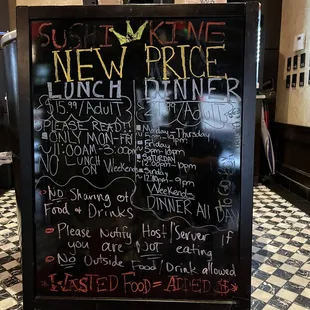 SUSHI KING
NEW PRICE
LUNCH
$15.99/Adult
PLEASE READ!!
ONLY MON-FRI
11:00AM-3:00PM
NO LUNCH
ON Weekend
DINNER
/Adult
Monday - Thursday
Friday
SATURDAY
12:00pm-10pm
SUNDAY
Weekend
DINNER All DAY
No Sharing of
Food & Drinks
Please Notify Host/Server if
you are NOT eating
No Outside Food/Drink allowed
*WASTED FOOD = ADDED $*